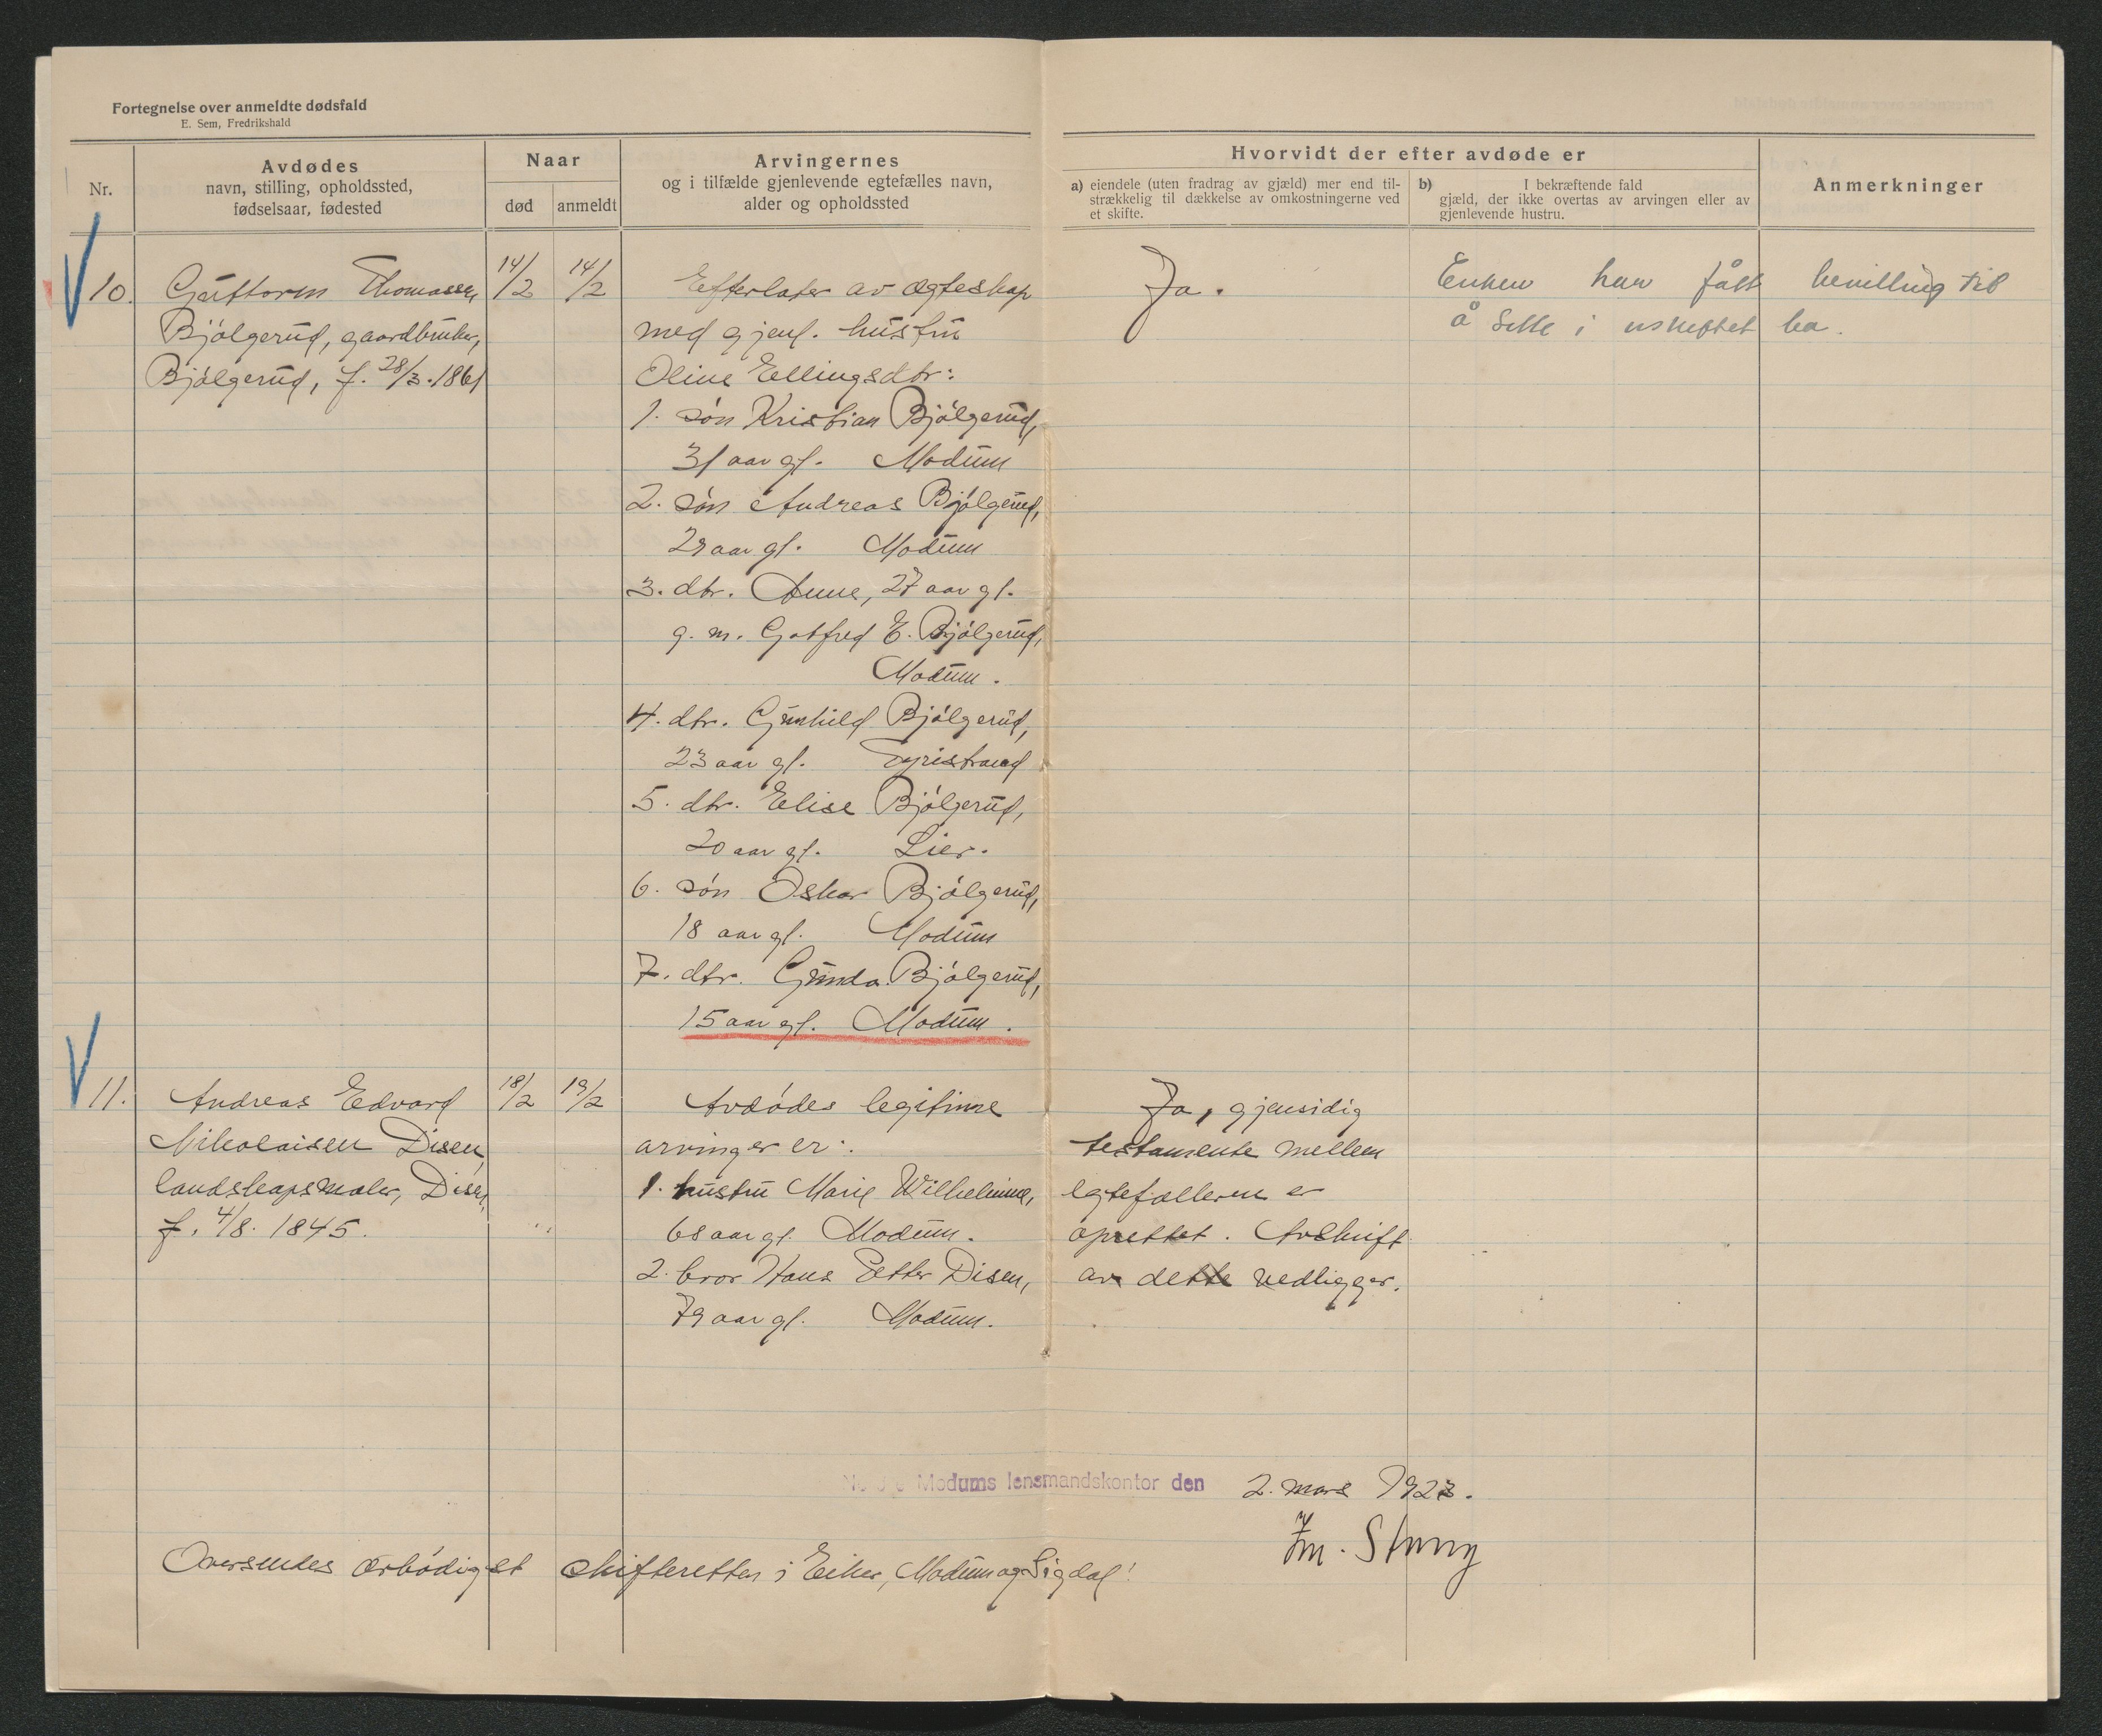 Fortegnelse over anmeldte dødsfald
E. Sem, Fredrikshald
Nr.
Avdødes
navn, stilling, opholdssted,
fødselsaar, fødested
Naar
død
anmeldt
Arvingernes
og i tilfælde gjenlevende egtefælles navn,
alder og opholdssted
Hvorvidt der efter avdøde er
a) eiendele (uten fradrag av gjæld) mer end til-
strækkelig til dækkelse av omkostningerne ved
et skifte.
b) I bekræftende fald
gjæld, der ikke overtas av arvingen eller av
gjenlevende hustru.
Anmerkninger
10. Guttorm Thomassen
Bjølgerud, gaardbruker,
Bjølgerud, f. 28/3. 1861
14/2
14/2
Efterlater av ægteskap
med gjenl. hustru
Oline Ellingsdtr:
1. søn Kristian Bjølgerud,
31 aar gl. Modum
2. søn Andreas Bjølgerud,
29 aar gl. Modum
3. dtr. Anne, 27 aar gl.
g. m. Gotfred E. Bjølgerud,
Modum.
4. dtr. Gunhild Bjølgerud,
23 aar gl. Tyristrand
5. dtr. Elise Bjølgerud,
20 aar gl. Lier.
6. søn Oskar Bjølgerud,
18 aar gl. Modum
7. dtr. Gunda Bjølgerud,
15 aar gl. Modum.
Ja.
Enken har fått bevilling til
å sitte i uskiftet bo.
11. Andreas Edvard
Nikolaisen Disen,
landskapsmaler, Disen,
f. 4/8. 1845.
18/2
19/2
Avdødes legitime
arvinger er:
1. hustru Marie Wilhelmine,
68 aar gl. Modum.
2. bror Hans Petter Disen,
79 aar gl. Modum.
Ja, gjensidig
testamente mellem
egtefællerne er
oprettet. Avskrift
av dette vedligger.
Modums lensmandskontor den 2. mars 1923.
Oversendes ærbødigst skifteretten i Eiker, Modum og Sigdal!